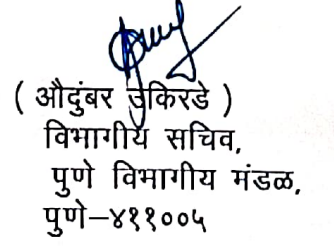 ( औदुंबर उकिरडे )
विभागीय सचिव,
पुणे विभागीय मंडळ,
पुणे–४११००५